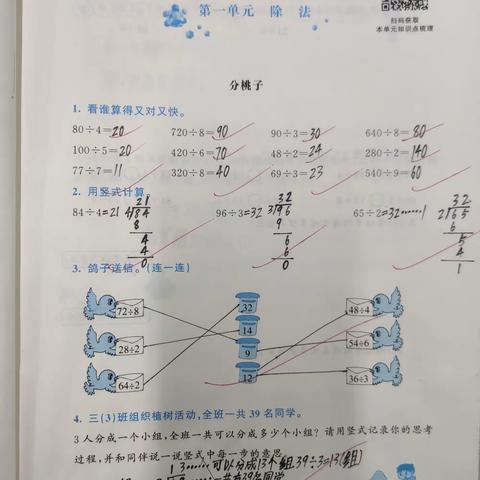 第一单元 除 法
扫码获取
本单元知识点梳理
分桃子
1. 看谁算得又对又快。
80÷4=20 720÷8=90 90÷3=30 640÷8=80
100÷5=20 420÷6=70 48÷2=24 280÷2=140
77÷7=11 320÷8=40 69÷3=23 540÷9=60
2. 用竖式计算
21 32 32
84÷4=21 4 84 96÷3=32 3 96 65÷2=32……1 2 65
8 9 6
4 6 5
4 6 4
0 0 1
3. 鸽子送信。(连一连)
72÷8 32 48÷4
28÷2 14 54÷6
9
64÷2 12 36÷3
4. 三(3)班组织植树活动,全班一共 39 名同学。
3 人分成一个小组,全班一共可以分成多少个小组? 请用竖式记录你的思考
过程,并和同伴说一说竖式中每一步的意思
13……可以分成13个组 39÷3=13(组)